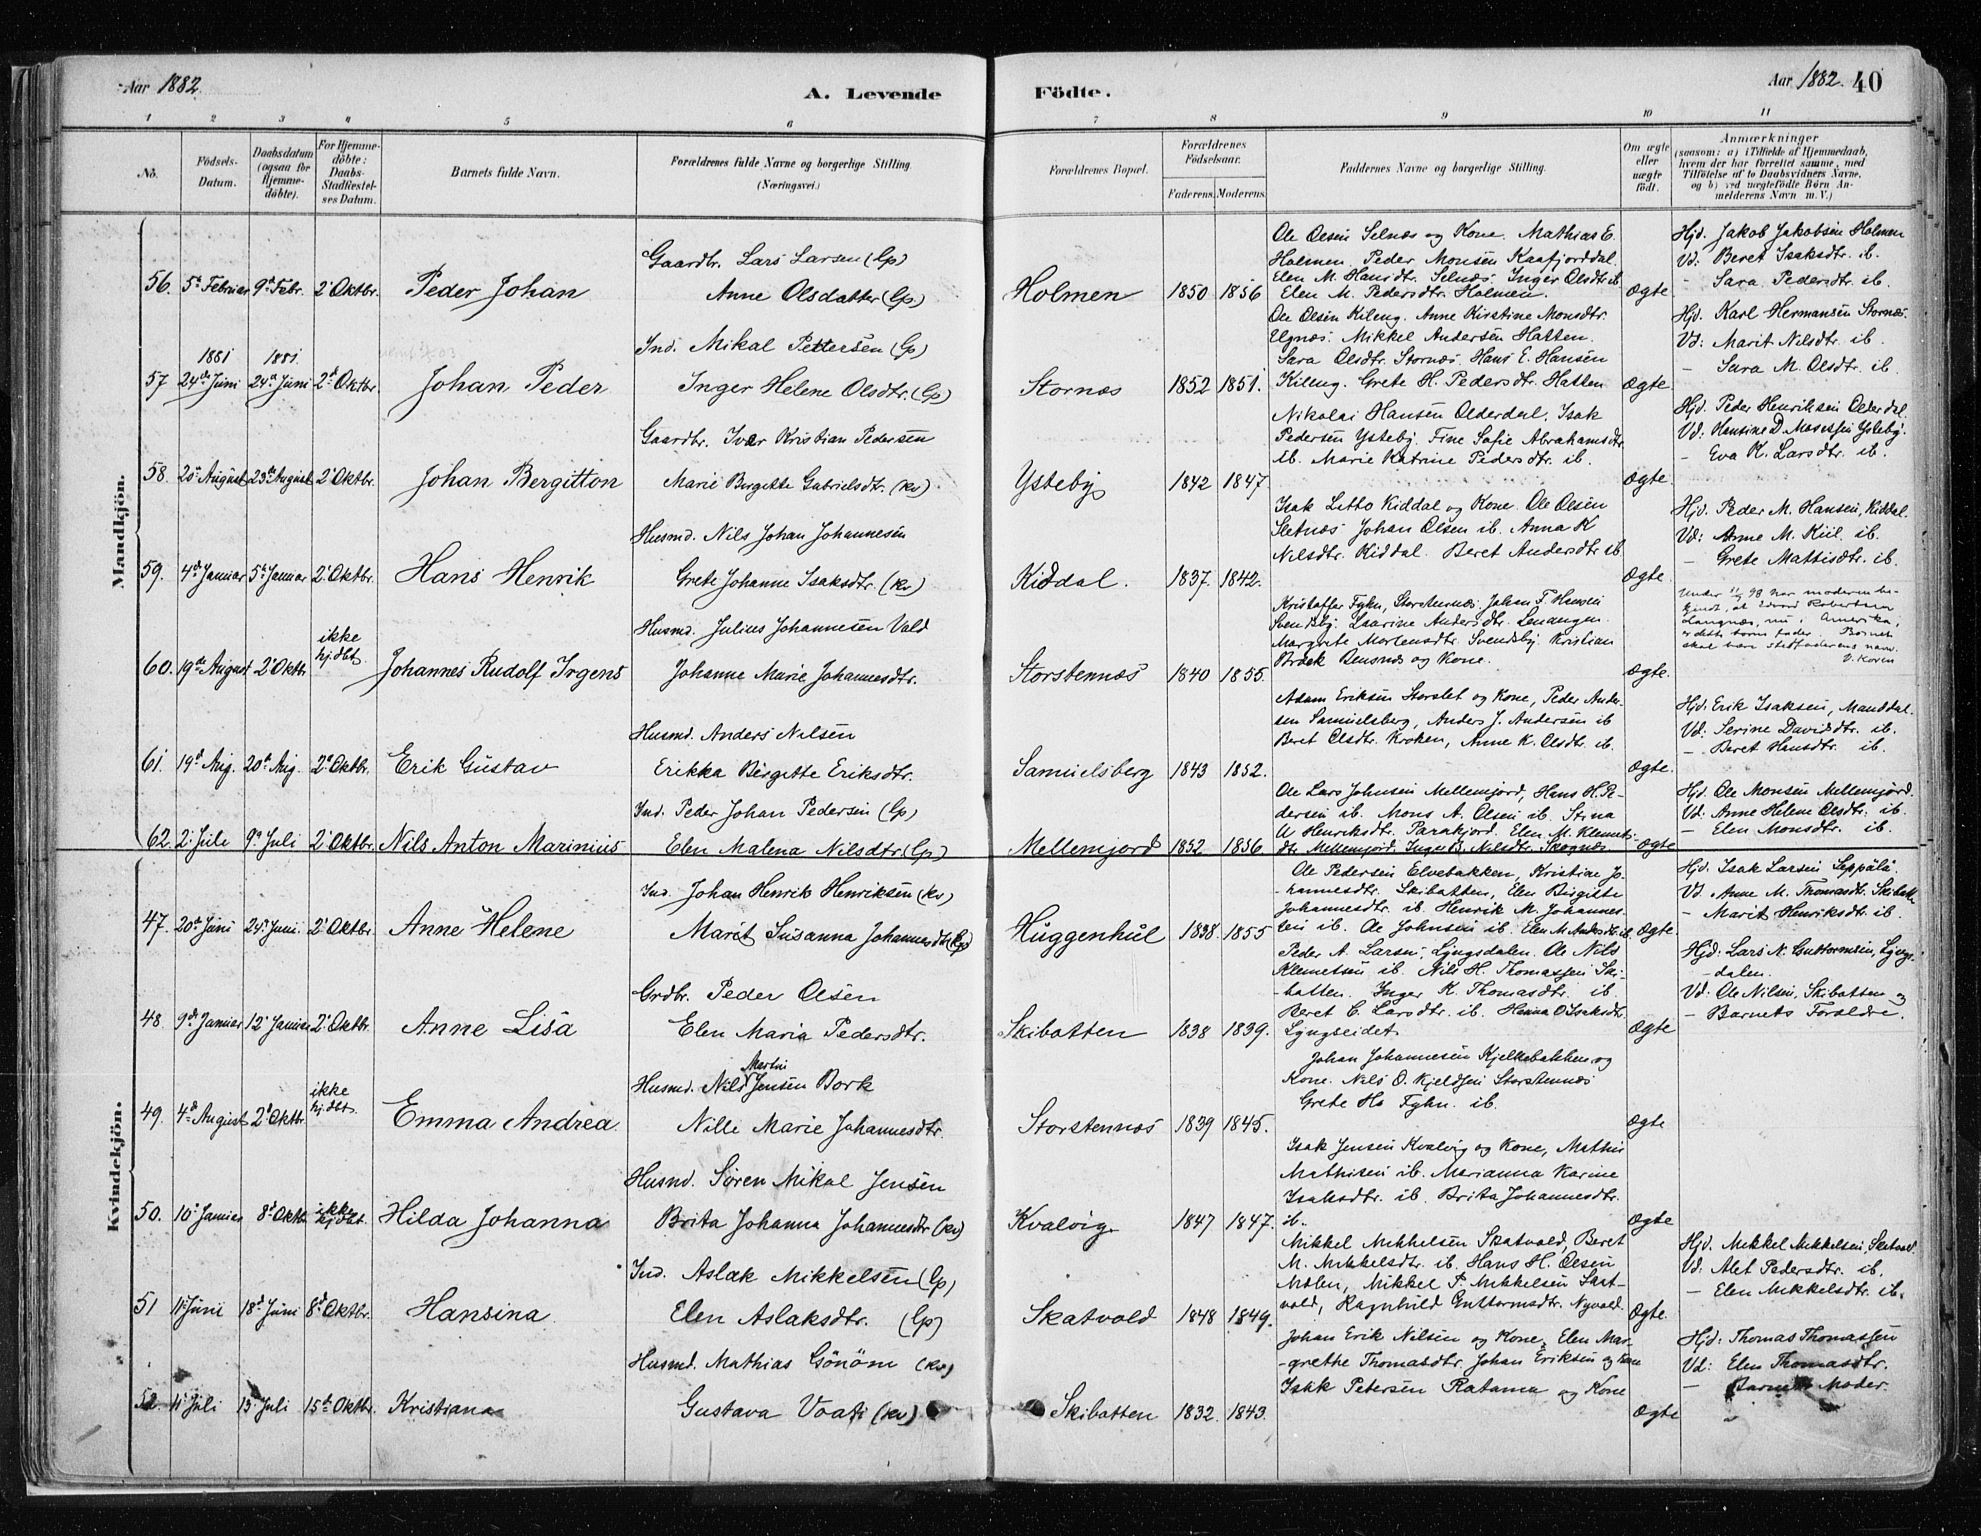 Aar 1882.
A. Levende
Födte.
Aar 1882. 40
1 2 3 4 5 6 7 8 9 10 11
No.
Födsels-
Datum.
Daabsdatum
(ogsaa for
Hjemme-
döbte).
For Hjemme-
döbte:
Daabs-
Stadfæstel-
ses Datum.
Barnets fulde Navn.
Forældrenes fulde Navne og borgerlige Stilling.
(Næringsvei.)
Forældrenes Bopæl.
Forældrenes
Födselsaar.
Faderens. Moderens.
Faddernes Navne og borgerlige Stilling.
Om ægte
eller
uægte
födt.
Anmærkninger
(saasom: a) i Tilfælde af Hjemmedaab,
hvem der har forrettet samme, med
Tilföielse af to Daabsvidners Navne,
og b) ved uægtefödte Börn An-
melderens Navn m.V.)
Mandkjön.
Gaardbr. Lars Larsen (Lp)
56. 5te Februar 9de Febr. 2d Oktbr. Peder Johan Anne Olsdatter (Lp) Holmen 1850 1856
Ole Olsen Selnæs og Kone. Mathias E.
Holmen. Peder Monsen Kaafjorddal.
Elen M. Hansdt. Selnæs. Inger Olsdtr ib
Elen M. Pedersdtr. Holmen. Ægte
Hjd. Jakob Jakobsen Holmen
Vd: Beret Isaksdtr. ib.
- Sara Pedersdtr ib.
Ind. Mikal Pettersen (Lp)
1881 1881.
57 24de Juni 24de Juni 2d Oktbr. Johan Peder Inger Helene Olsdtr. (Lp) Stornæs 1852 1851.
Ole Olsen Kileng. Anne Kirstine Monsdtr.
Elgnæs. Mikkel Andersen Hatten.
Sara Olsdtr. Stornæs Hans E. Hansen
Kileng. Grete H. Pedersdtr. Hatten Ægte
Hjd. Karl Hermansen Stornæs.
Vd: Marit Nilsdtr ib.
- Sara M. Olsdtr. ib.
Gaardbr. Iver Kristian Pedersen
58. 20de August 23de August 2d Oktbr. Johan Bergitton Marie Bergette Gabrielsdtr. (kv) Ysteby 1842 1847
Nikolai Hansen Olderdal. Isak
Pedersen Ysteby. Fine Sofie Abrahamsdtr
ib. Marie Katrine Pedersdtr. ib. Ægte.
Hjd. Peder Henriksen Olderdal.
Vd: Hansine D. Mosessen Ysteby.
- Eva K. Larsdtr. ib.
Husmd. Nils Johan Johannesen
59. 4de Januar 5te Januar 2d Oktbr. Hans Henrik Grete Johanne Isaksdtr. (kv) Kiddal. 1837. 1842.
Isak Litto Kiddal og Kone. Ole Olsen
Sletnæs Johan Olsen ib. Anna K
Nilsdtr. Kiddal. Beret Andersdtr ib Ægte.
Hjv. Peder M. Hansen, Kiddal.
Vd: Anne M. Kiil ib.
- Grete Mattisdtr. ib.
Husmd. Julius Johannesen Vald
60. 19de August 2d Oktbr ikke hj.dbt. Johannes Rudolf Irgens Johanne Marie Johannesdtr. Storstennæs 1840 1855.
Kristoffer Fykn, Storstennæs. Johan F. Hansen
Svendsby. Laurine Andersdtr. Lenangen.
Margrete Mortensdtr. Svendsby. Kristian
Bræk Bensnæs og Kone. Ægte.
Under 11/9 98 har moderen be-
kjendt, at Edvard Robertsen
Langnæs, nu i Amerika,
er dette barns fader. Barnet
skal bære stedfaderens navn.
V. Koren
Husmd. Anders Nilsen
61. 19de Aug. 20de Aug. 2d Oktbr. Erik Gustav Erikka Birgitte Eriksdtr. Samuelsberg 1843 1852.
Adam Eriksen Storslet og Kone, Peder Ander-
sen Samuelsberg, Anders J. Andersen ib
Beret Olsdtr. Kroken, Anne K. Olsdtr. ib. Ægte.
Hjd. Erik Isaksen, Manddal.
Vd: Serine Daviddtr. ib.
- Beret Hansdtr. ib.
Ind. Peder Johan Pedersen (Lp)
62. 2d Jule 9de Juli 2d Oktbr. Nils Anton Marinius Elen Malena Nilsdtr (Lp) Mellemjord 1852 1856
Ole Lars Johnsen Mellemjord, Hans H. Pe-
dersen ib. Mons A. Olsen ib. Stina
A Henriksdtr. Parakjord. Elen M. Klemets-
dtr Mellemjord. Inger B. Nilsdtr. Skognæs. Ægte
Hjd. Ole Monsen Mellemjord.
Vd: Anne Helene Olsdtr. ib.
- Elen Monsdtr. ib.
Kvindekjön.
Ind. Johan Henrik Henriksen (kv)
47. 20de Juni 24de Juni 2d Oktbr Anne Helene Marit Susanna Johannesdtr (Lp) Huggenhul 1838. 1855
Ole Pedersen Elvebakken, Kristine Jo-
hannesdtr. Skibotten, Elen Birgitte
Johannesdtr. ib. Henrik M. Johannes-
sen ib. Ole Johnsen ib. Elen M Andersdtr ib. Ægte.
Hjd. Isak Larsen Seppälä.
Vd. Anne M. Thomasdtr. Skibotten
- Marit Henriksdtr. ib.
Grdbr. Peder Olsen
48. 9de Januar 12te Januar 2d Oktbr. Anne Lisa Elen Maria Pedersdtr. Skibotten 1838 1839.
Peder A. Larsen, Lyngsdalen. Ole Nils
Klemetsen ib. Nils H. Thomassen Ski-
botten. Inger K. Thomasdtr. ib.
Beret C. Larsdtr. ib. Henna O. Isaksdtr.
Lyngseidet. Ægte
Hjd: Lars N. Guttormsen, Lyngs-
dalen.
Vd: Ole Nilsen, Skibotten og
- Barnets Forældre.
Husmd. Nils Martin Jensen Bork
49. 4de August 2d Oktbr ikke hj.dbt. Emma Andrea. Nille Marie Johannesdtr. Storstennæs 1839 1845.
Johan Johannesen Kjelkebakken og
Kone. Nils O. Kjeldsen Storstennæs
Grete Ho Fykn. ib. Ægte
Husmd. Søren Mikal Jensen
50. 10de Januar 8de Oktbr ikke hj.dbt. Hilda Johanna Brita Johanna Johannesdtr (kv) Kvalvig 1847 1847.
Isak Jensen Kvalvig og Kone, Mathis
Mathisen ib. Marianna Karine
Isaksdtr. ib. Brita Johannesdtr.
ib. Ægte
Ind. Aslak Mikkelsen (Lp)
51 11te Juni 18de Juni 8de Oktbr. Hansina Elen Aslaksdtr. (Lp) Skatvold 1848 1849.
Mikkel Mikkelsen Skatvold, Beret
M. Mikkelsdtr. ib. Hans H. Olsen
Molen, Mikkel P. Mikkelsen Skat-
vold, Ragnhild Guttormsdtr. Nyvold. Ægte.
Hjd. Mikkel Mikkelsen, Skatvold.
Vd: Alet Pedersdtr. ib.
- Elen Mikkelsdtr. ib.
Husmd. Mathias Gönöm (kv)
52 11te Juli 13de Juli 15de Oktbr. Kristiana Gustava Voati (kv) Skibotten 1832. 1843.
Johan Erik Nilsen og Kone, Elen Mar-
grethe Thomasdtr. Johan Eriksen og Kone
Isak Petersen Ratama og Kone Ægte
Hjd: Thomas Thomassen
Vd: Elen Thomasdtr.
- Barnets Moder.